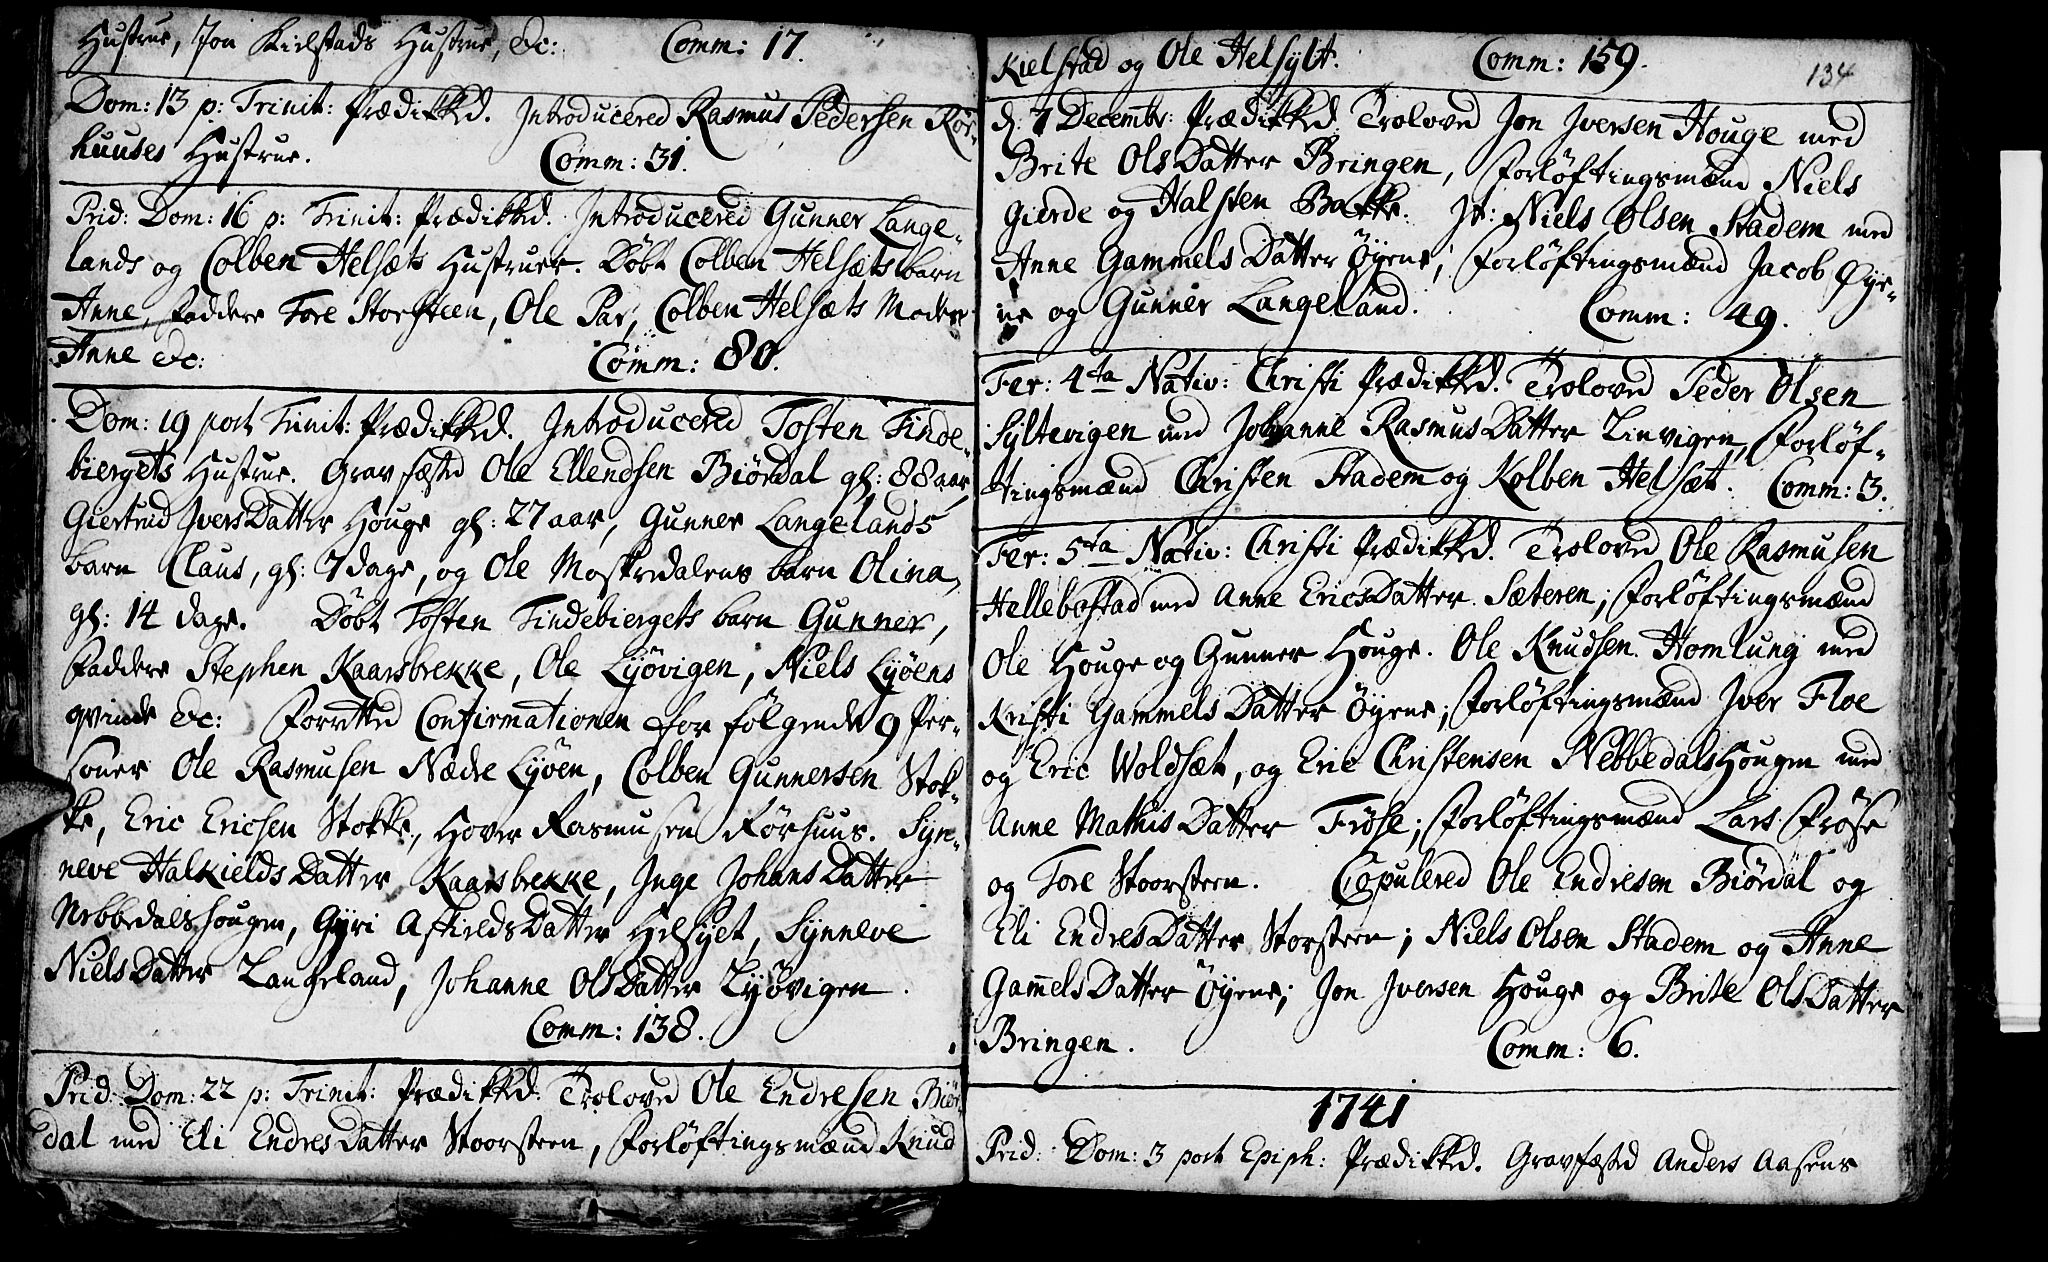 Hustrue, Jon Kielstads Hustrue, &c: Comm: 17.
Dom: 13 p: Trinit: Prædikked. Introducered Rasmus Pedersen Rör-
huuses Hustrue. Comm: 31.
Prid: Dom: 16 p: Trinit: Prædikked. Introducered Gunner Lange-
lands og Colben Helsæts Hustruer. Döbt Colben Helsæts barn
Anne, Faddere Tore Storsteen, Ole Par, Colben Helsæts Moder
Anne &c: Comm: 80.
Dom: 19 post Trinit: Prædikked. Introducered Tosten Finde-
biergets Hustrue. Gravfæsted Ole Ellendsen Biördal gl: 88 aar,
Giertrud IversDatter Houge gl: 27 aar, Gunner Langelands
barn Claus, gl: 7 dage, og Ole Moskedalens barn Olina,
gl: 14 dage. Döbt Tosten Findebiergets barn Gunner,
Faddere Stephen Kaarsbrekke, Ole Lyövigen, Niels Lyöens
qvinde &c: Forretted Confirmationen for fölgende 9 Per-
soner Ole Rasmusen Nædre Lyöen, Colben Gunnersen Stok-
ke, Eric Ericsen Stokke, Hover Rasmusen Rörhuus. Syn-
neve HalkieldsDatter Kaarsbrekke, Inge JohansDatter
Nebbedalshougen, Gyri AskieldsDatter Helsyet, Synneve
NielsDatter Langeland, Johanne OlsDatter Lyövigen.
Comm: 138.
Prid: Dom: 22 p: Trinit: Prædikked. Troloved Ole Endresen Biör-
dal med Eli EndresDatter Stoorsteen, Forlöftingsmænd Knud
Kielstad og Ole Helsylt. Comm: 159.
134
d. 7 Decembr: Prædikked. Troloved Jon Iversen Houge med
Brite OlsDatter Bringen, Forlöftingsmænd Niels
Gierde og Halsten Bakke. It: Niels Olsen Stadem med
Anne GammelsDatter Öyene; Forlöftingsmænd Jacob Öye-
ne og Gunner Langeland. Comm: 49.
Fer: 4ta Nativ: Christi Prædikked. Troloved Peder Olsen
Syltevigen med Johanne RasmusDatter Linvigen, Forlöf-
tingsmænd Christen Stadem og Kolben Helsæt. Comm: 3.
Fer: 5ta Nativ: Christi Prædikked. Troloved Ole Rasmusen
Hellebostad med Anne EricsDatter Sæteren; Forlöftingsmænd
Ole Houge og Gunner Houge. Ole Knudsen Homlung med
Kristi GammelsDatter Öyene; Forlöftingsmænd Iver Floe
og Eric Woldsæt, og Eric Christensen Nebbedalshougen med
Anne MathisDatter Fröse; Forlöftingsmænd Lars Fröse
og Tore Stoorsteen. Copulered Ole Endresen Biördal og
Eli EndresDatter Storsteen; Niels Olsen Stadem og Anne
GammelsDatter Öyene; Jon Iversen Houge og Brite OlsDatter
Bringen. Comm: 6.
1741
Prid: Dom: 3 post Epiph: Prædikked. Gravfæsted Anders Aasens